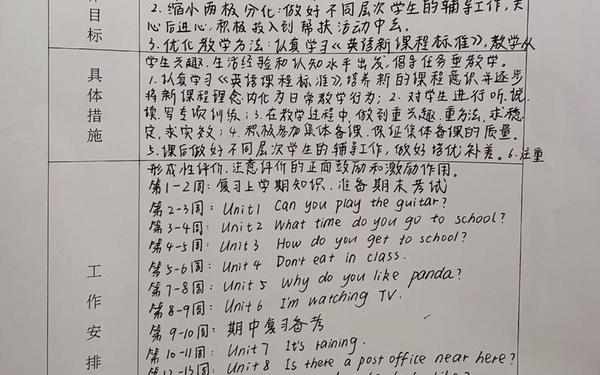 目标
2. 缩小两极分化：做好不同层次学生的辅导工作，关
心后进心，积极投入到帮扶活动中去。
3. 优化教学方法：认真学习《英语新课程标准》，教学从
学生兴趣、生活经验和认知水平出发，倡导任务型教学。
具体措施
1. 认真学习《英语课程标准》，培养新的课程意识并逐步
将新课程理念内化为日常教学行为；2. 对学生进行听、说、
读、写专项训练；3. 在教学过程中，做到重兴趣、重方法、求稳
定、求实效；4. 积极参加集体备课，保证集体备课的质量。
5. 课后做好不同层次学生的辅导工作，做好培优补差。6. 注重
形成性评价，注意评价的正面鼓励和激励作用。
工作安排
第1-2周：复习上学期知识，准备期末考试
第2-3周：Unit1 Can you play the guitar?
第3-4周：Unit2 What time do you go to school?
第4-5周：Unit 3 How do you get to school?
第5-6周：Unit 4 Don't eat in class.
第7-8周：Unit 5 Why do you like panda?
第8-9周：Unit 6 I'm watching TV.
第9-10周：期中复习备考
第10-11周：Unit 7 It's raining.
第12-13周：Unit 8 Is there a post office near here?